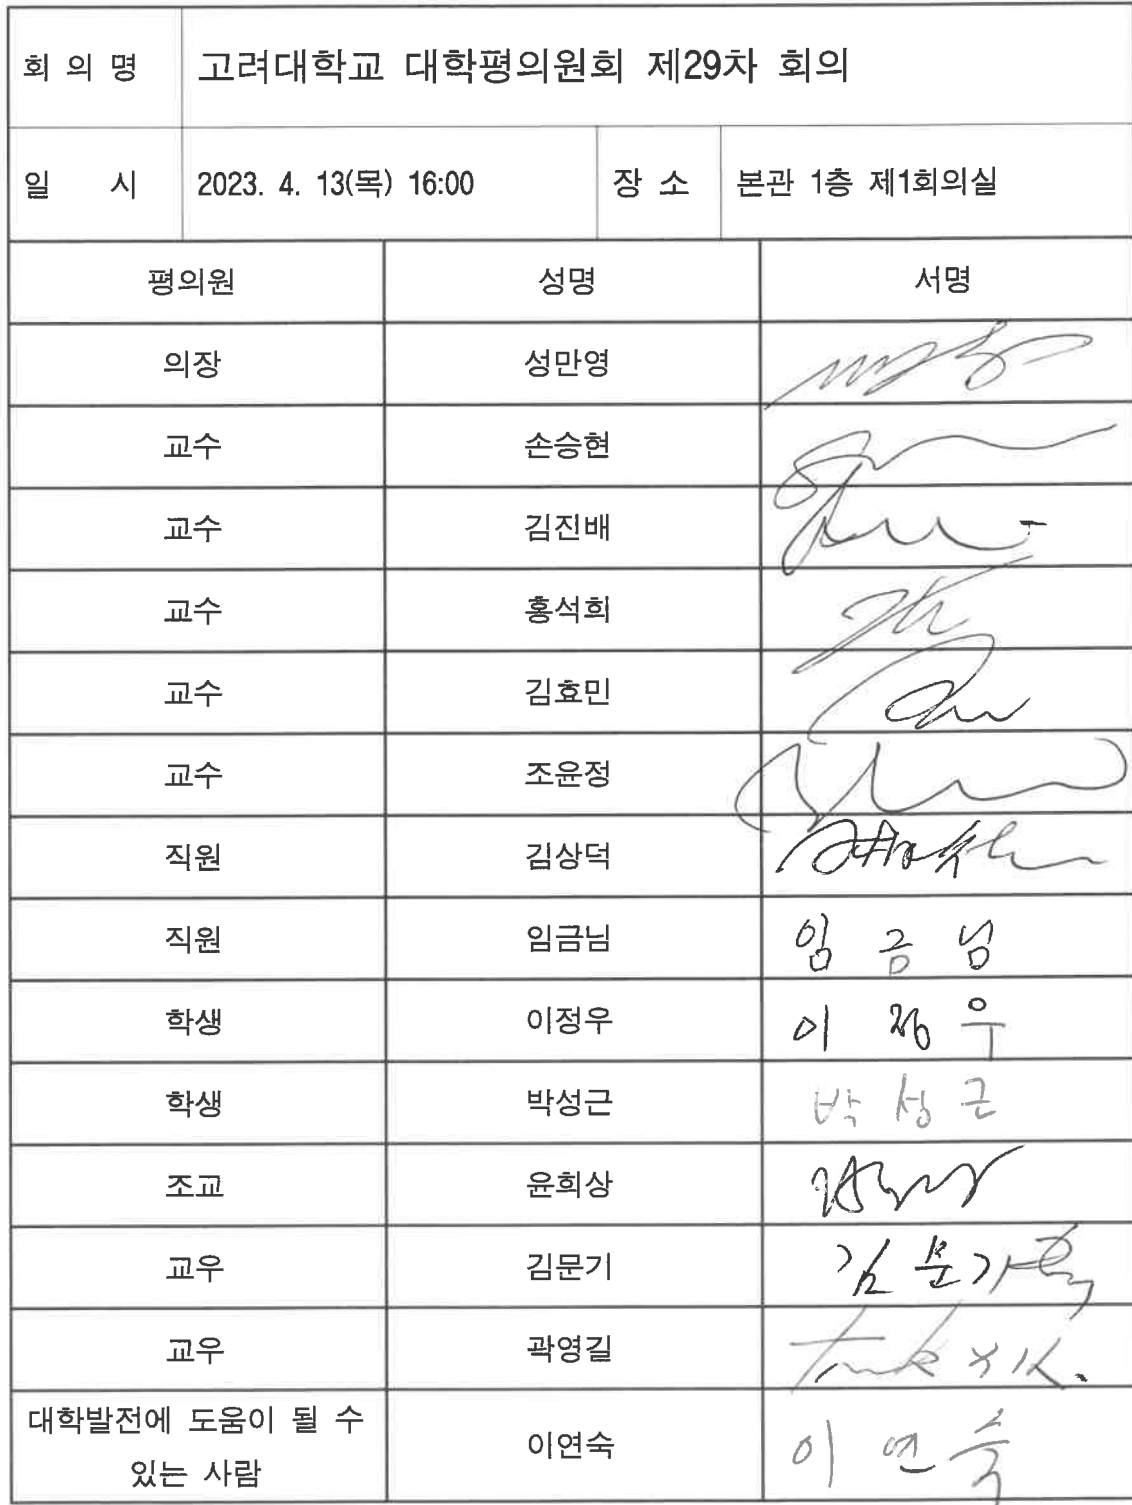 회 의 명 고려대학교 대학평의원회 제29차 회의
일 시 2023. 4. 13(목) 16:00 장 소 본관 1층 제1회의실
평의원 성명 서명
의장 성만영
교수 손승현
교수 김진배
교수 홍석희
교수 김효민
교수 조윤정
직원 김상덕
직원 임금님 임 금 님
학생 이정우 이 정 우
학생 박성근 박 성 근
조교 윤희상
교우 김문기 김 문 기
교우 곽영길
대학발전에 도움이 될 수
있는 사람 이연숙 이 연 숙